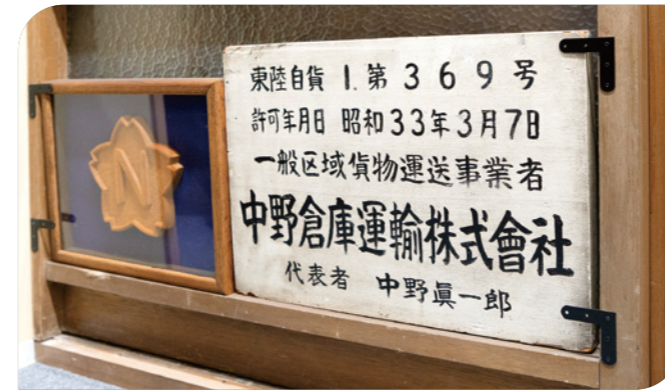 東陸自貨 1.第369号
許可年月日 昭和33年3月7日
一般区域貨物運送事業者
中野倉庫運輸株式會社
代表者 中野眞一郎
N